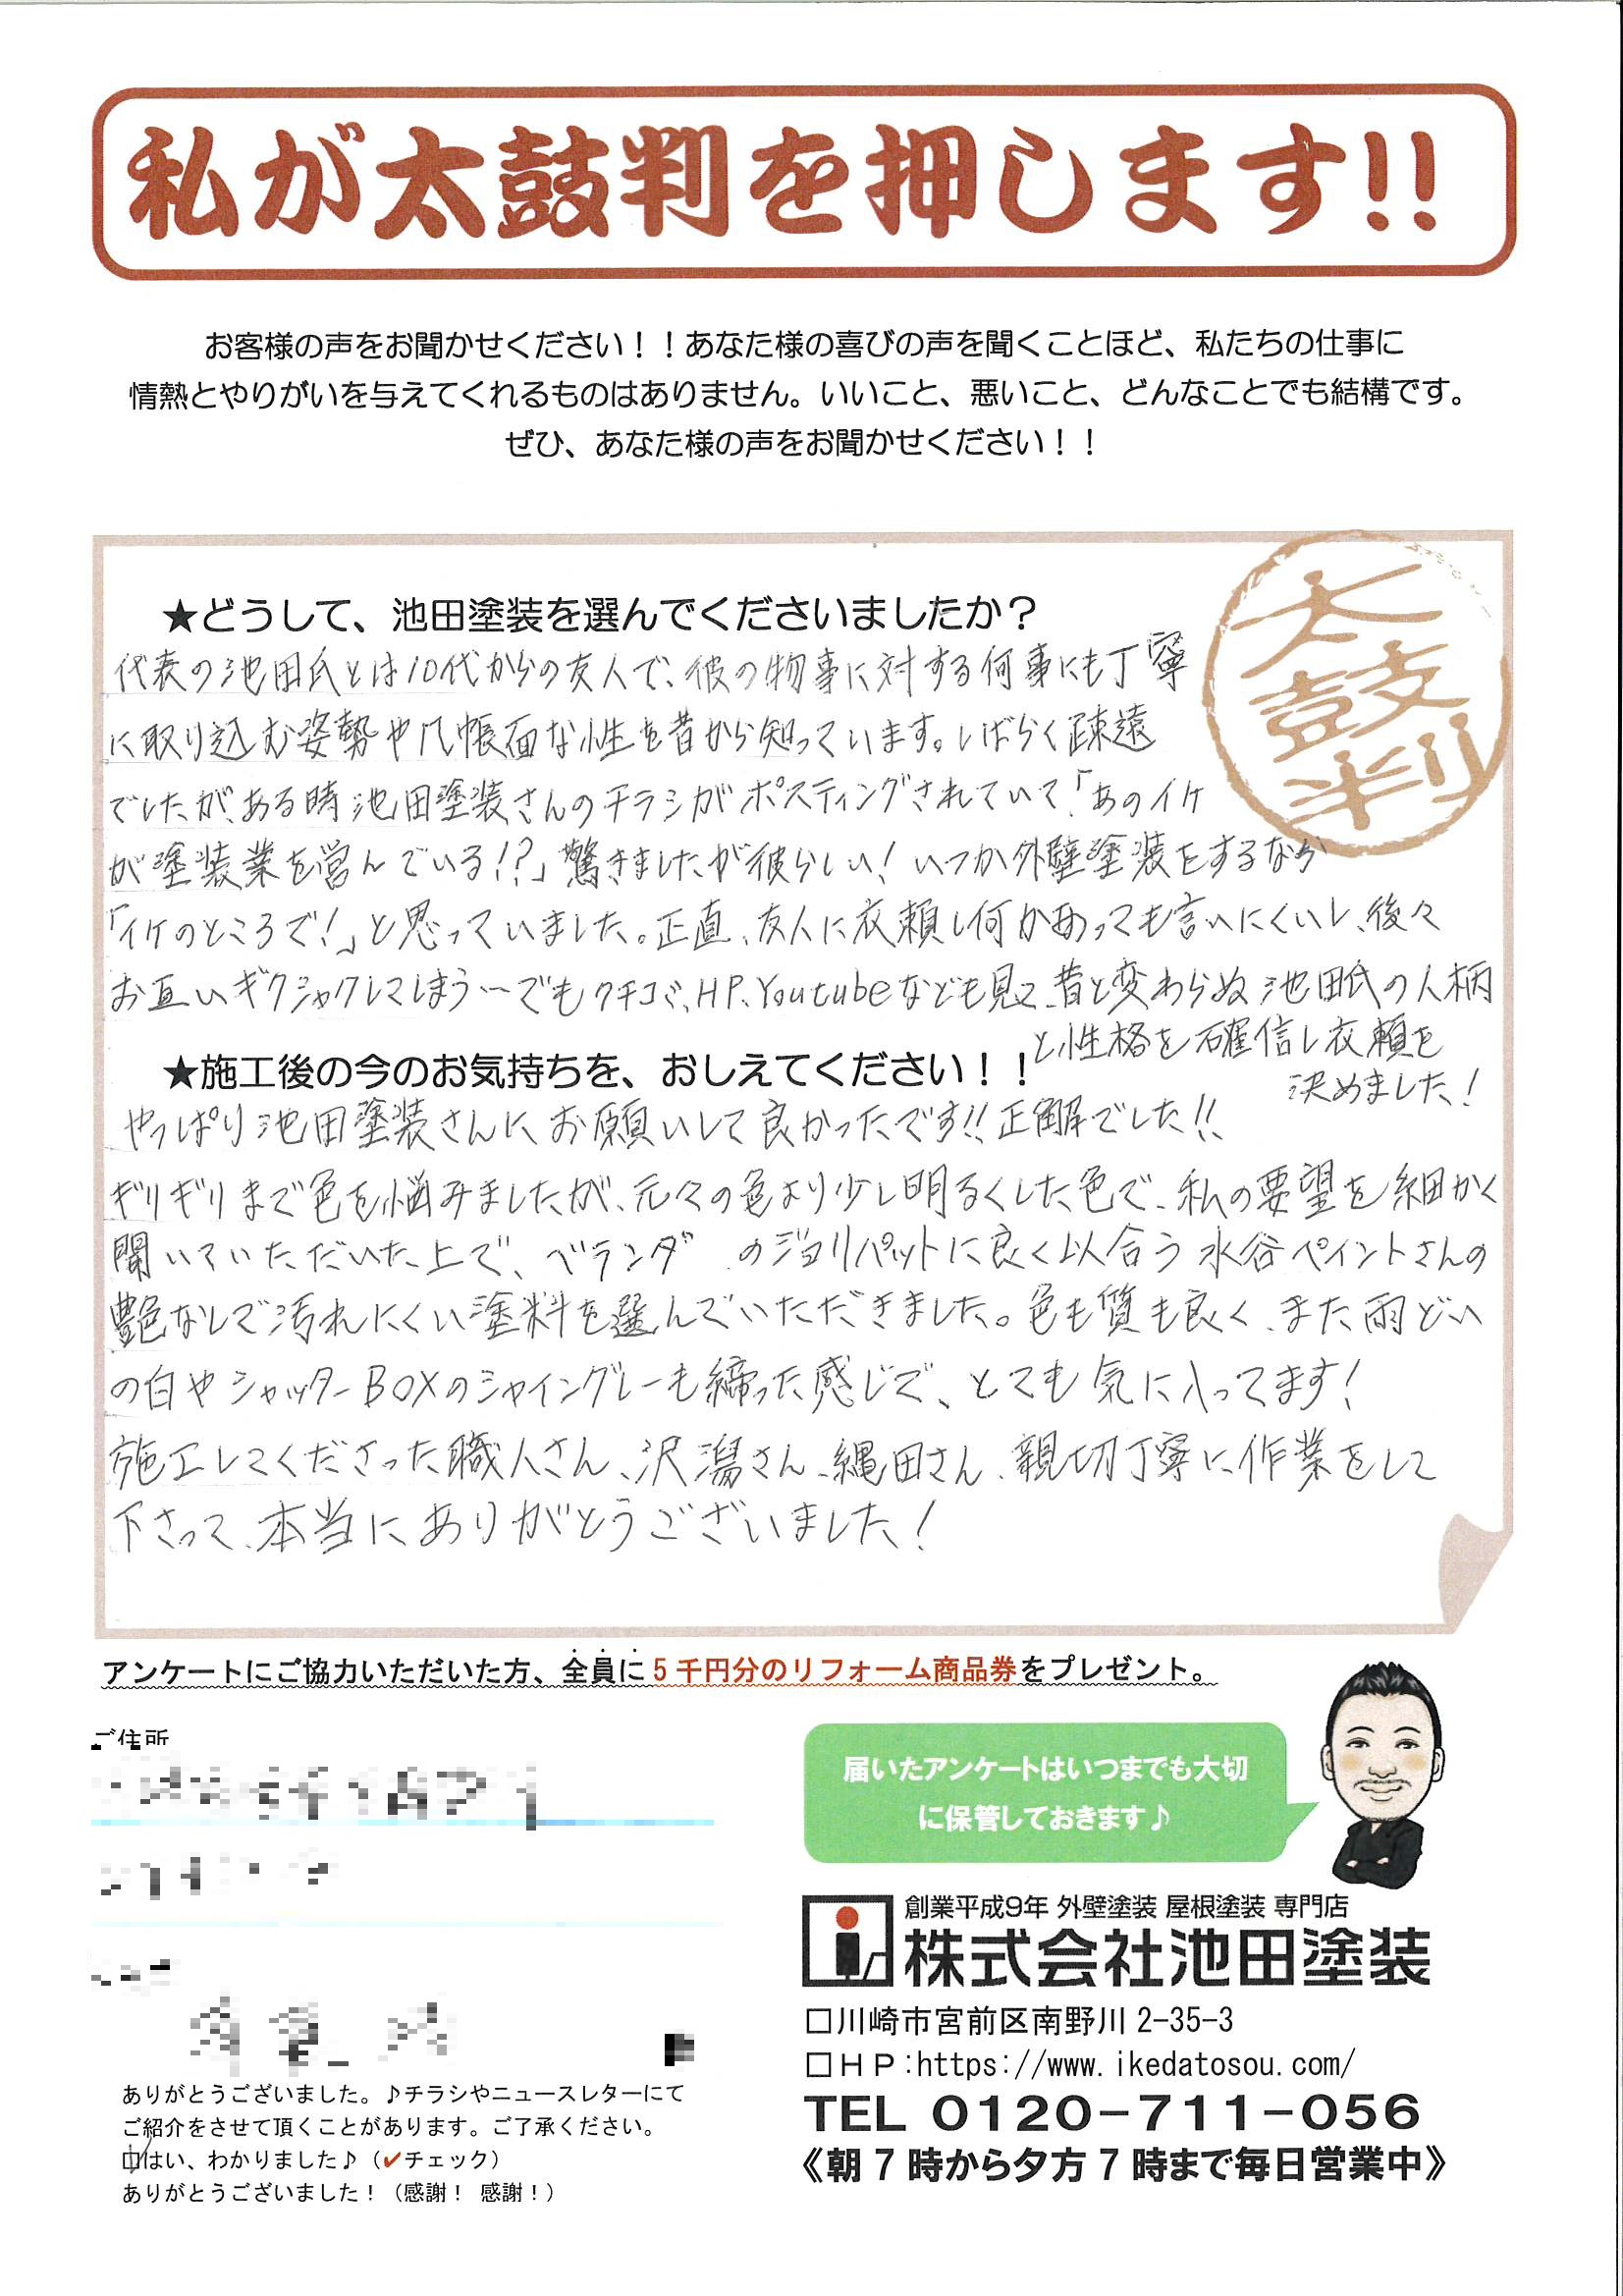 私が太鼓判を押します!!
お客様の声をお聞かせください！！あなた様の喜びの声を聞くことほど、私たちの仕事に
情熱とやりがいを与えてくれるものはありません。いいこと、悪いこと、どんなことでも結構です。
ぜひ、あなた様の声をお聞かせください！！
太鼓判
★どうして、池田塗装を選んでくださいましたか？
代表の池田氏とは10代からの友人で、彼の物事に対する何事にも丁寧
に取り込む姿勢や几帳面な性を昔から知っています。しばらく疎遠
でしたが、ある時池田塗装さんのチラシがポスティングされていて、「あのイケ
が塗装業を営んでいる!?」驚きましたが彼らしい！いつか外壁塗装をするなら
「イケのところで！」と思っていました。正直、友人に依頼し何かあっても言いにくいし、後々
お互いギクシャクしてしまう…でもクチコミ、HP、Youtubeなども見て、昔と変わらぬ池田氏の人柄
と性格を確信し依頼を
決めました！
★施工後の今のお気持ちを、おしえてください！！
やっぱり池田塗装さんにお願いして良かったです!!正解でした!!
ギリギリまで色を悩みましたが、元々の色より少し明るくした色で、私の要望を細かく
聞いていただいた上で、ベランダのジョリパットに良く似合う水谷ペイントさんの
艶なしで汚れにくい塗料を選んでいただきました。色も質も良く、また雨どい
の白やシャッターBOXのシャイングレーも締った感じで、とても気に入ってます！
施工してくださった職人さん、沢潟さん、縄田さん、親切丁寧に作業をして
下さって、本当にありがとうございました！
アンケートにご協力いただいた方、全員に５千円分のリフォーム商品券をプレゼント。
ご住所
届いたアンケートはいつまでも大切
に保管しておきます♪
創業平成9年 外壁塗装 屋根塗装 専門店
株式会社池田塗装
□川崎市宮前区南野川 2-35-3
□ＨＰ:https://www.ikedatosou.com/
TEL 0120-711-056
《朝７時から夕方７時まで毎日営業中》
ありがとうございました。♪チラシやニュースレターにて
ご紹介をさせて頂くことがあります。ご了承ください。
□はい、わかりました♪（✔チェック）
ありがとうございました！（感謝！ 感謝！）